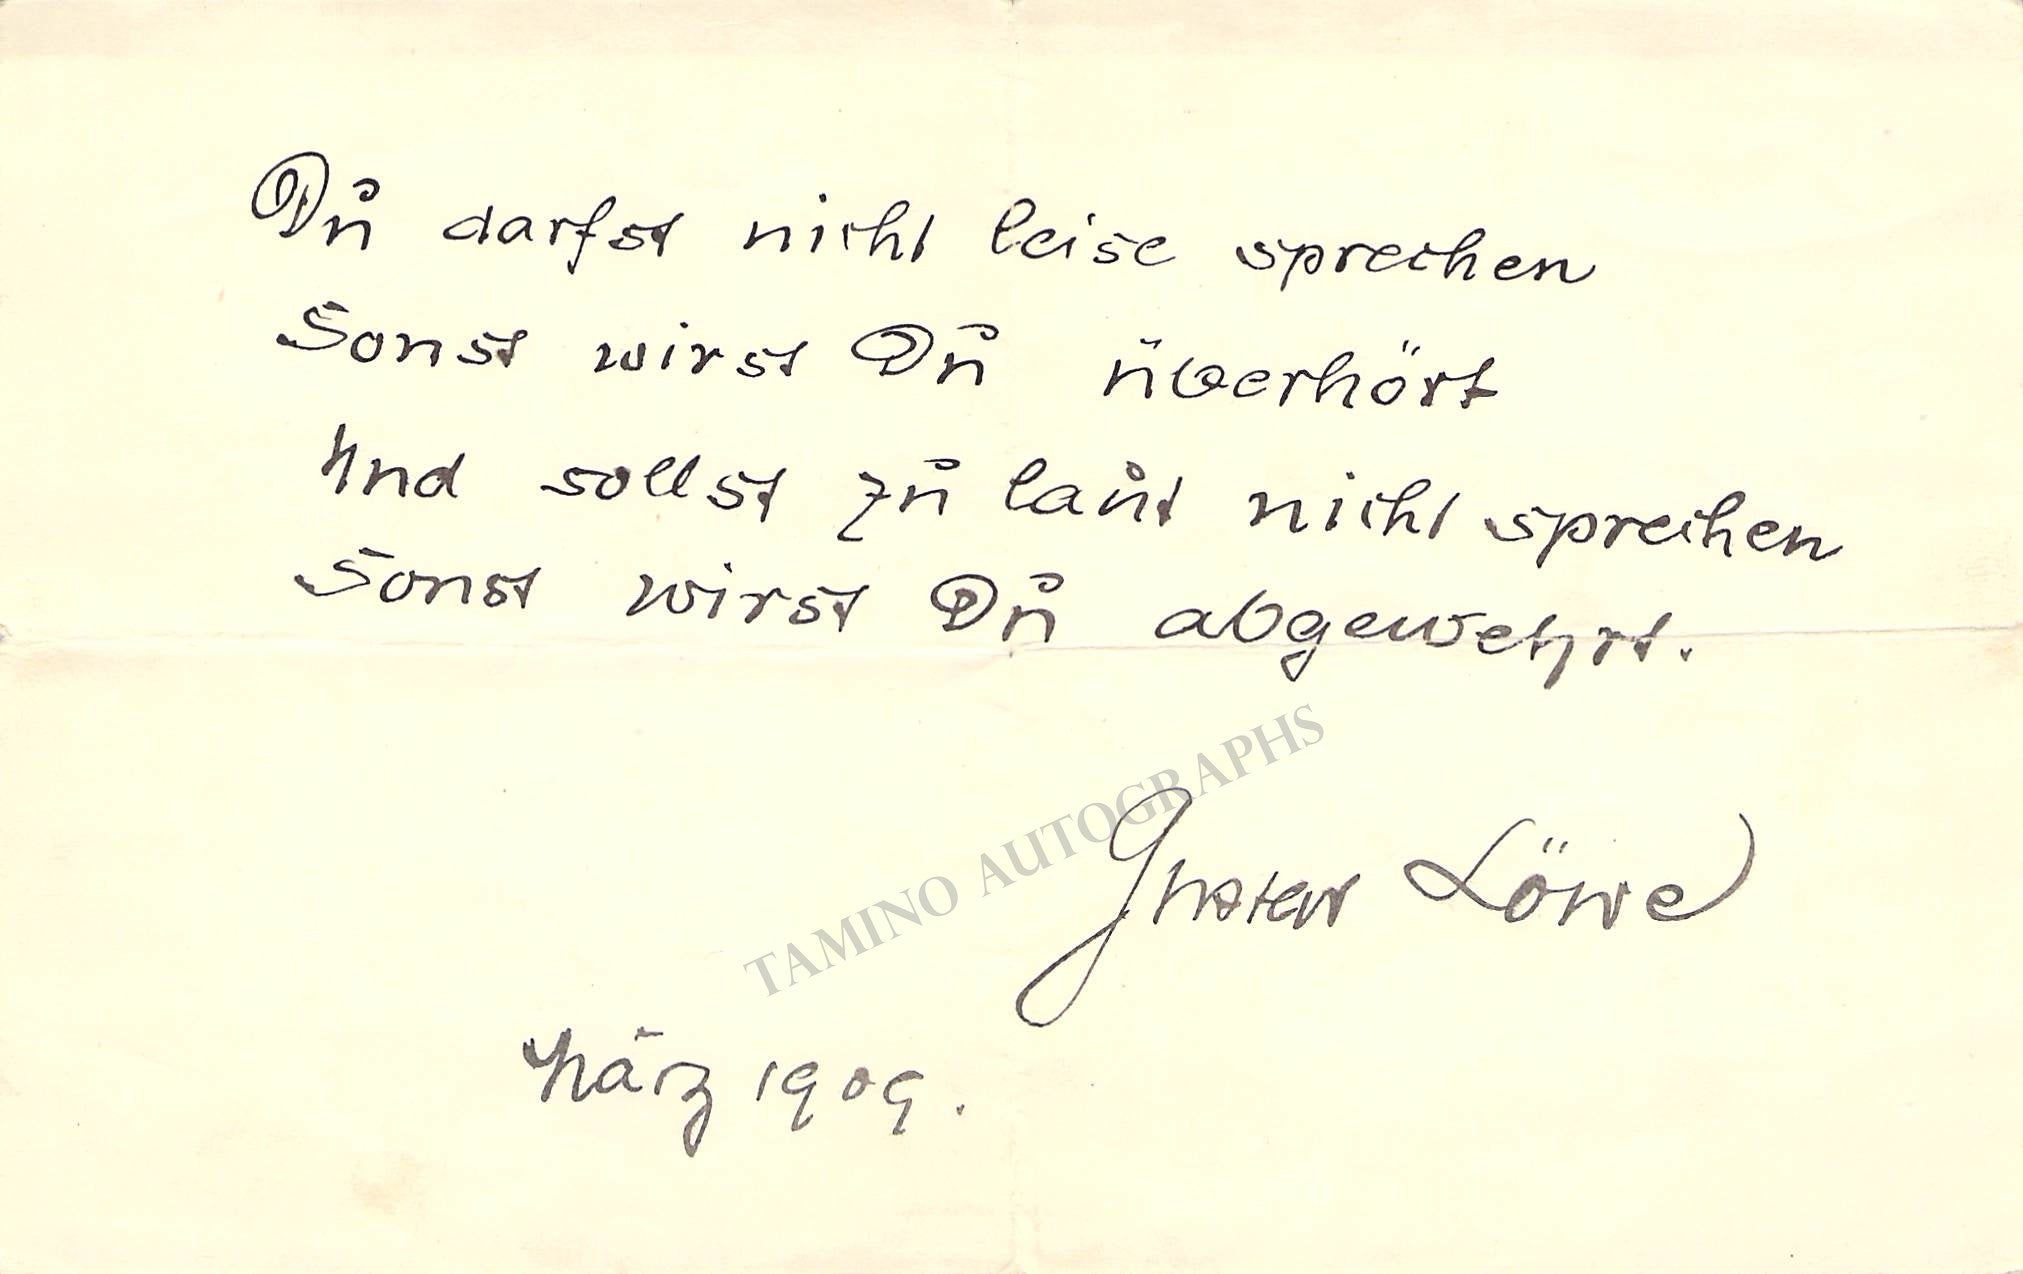 Du darfst nicht leise sprechen
Sonst wirst Du überhört
Und sollst zu laut nicht sprechen
Sonst wirst Du abgewehrt.
TAMINO AUTOGRAPHS
Gustav Löwe
März 1909.